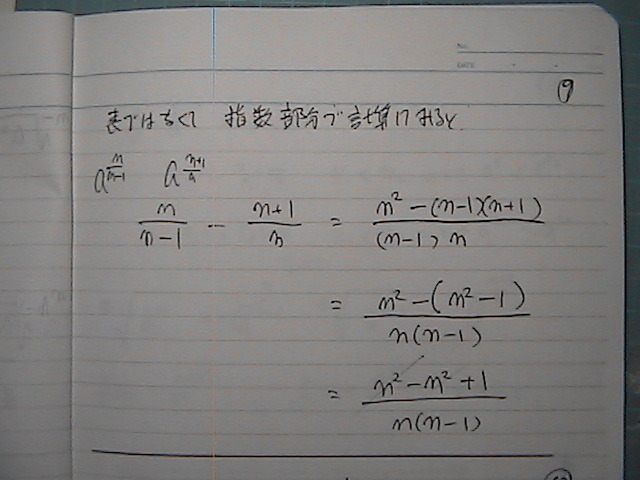 No.
DATE
⑨
表ではなくて 指数部分で計算すると
a^{\frac{n}{n-1}} a^{\frac{n+1}{n}}
\frac{n}{n-1} - \frac{n+1}{n} = \frac{n^2-(n-1)(n+1)}{(n-1)n}
= \frac{n^2-(n^2-1)}{n(n-1)}
= \frac{n^2-n^2+1}{n(n-1)}